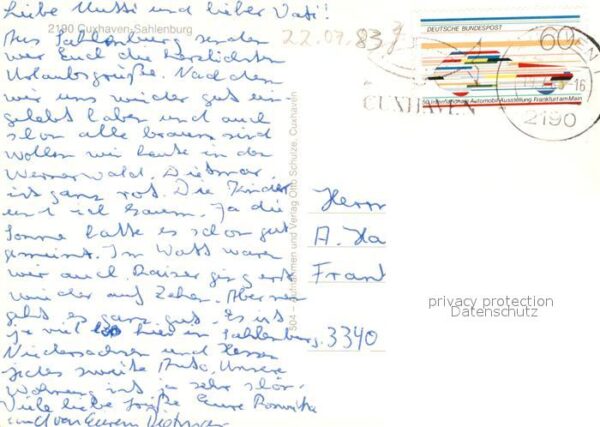 Liebe Mutti und lieber Vati!
2190 Cuxhaven-Sahlenburg
Aus Sahlenburg senden
wir Euch die herzlichsten
Urlaubsgrüße. Nachdem
wir uns wieder gut ein
gelebt haben und auch
schon alle braun sind
wollen wir heute in den
Wernerwald. Dietmar
ist ganz rot. Die Kinder
und ich braun. Ja die
Sonne hatte es schon gut
gemeint. Im Watt waren
wir auch. ging erst
wieder auf Zehen. Aber nun
geht es ganz gut. Es ist
ja viel los hier in Sahlenburg.
Niedersachsen und Hessen
jedes zweite Auto. Unsere
Wohnung ist ja sehr schön.
Viele liebe Grüße Eure Roswitha
und von Eurem Dietmar
22.07.83
DEUTSCHE BUNDESPOST
60
50. Internationale Automobil-Ausstellung Frankfurt am Main
CUXHAVEN
-16
2190
und Verlag Otto Schulze, Cuxhaven
Herrn
A. Ha
Frank
3340
privacy protection
Datenschutz